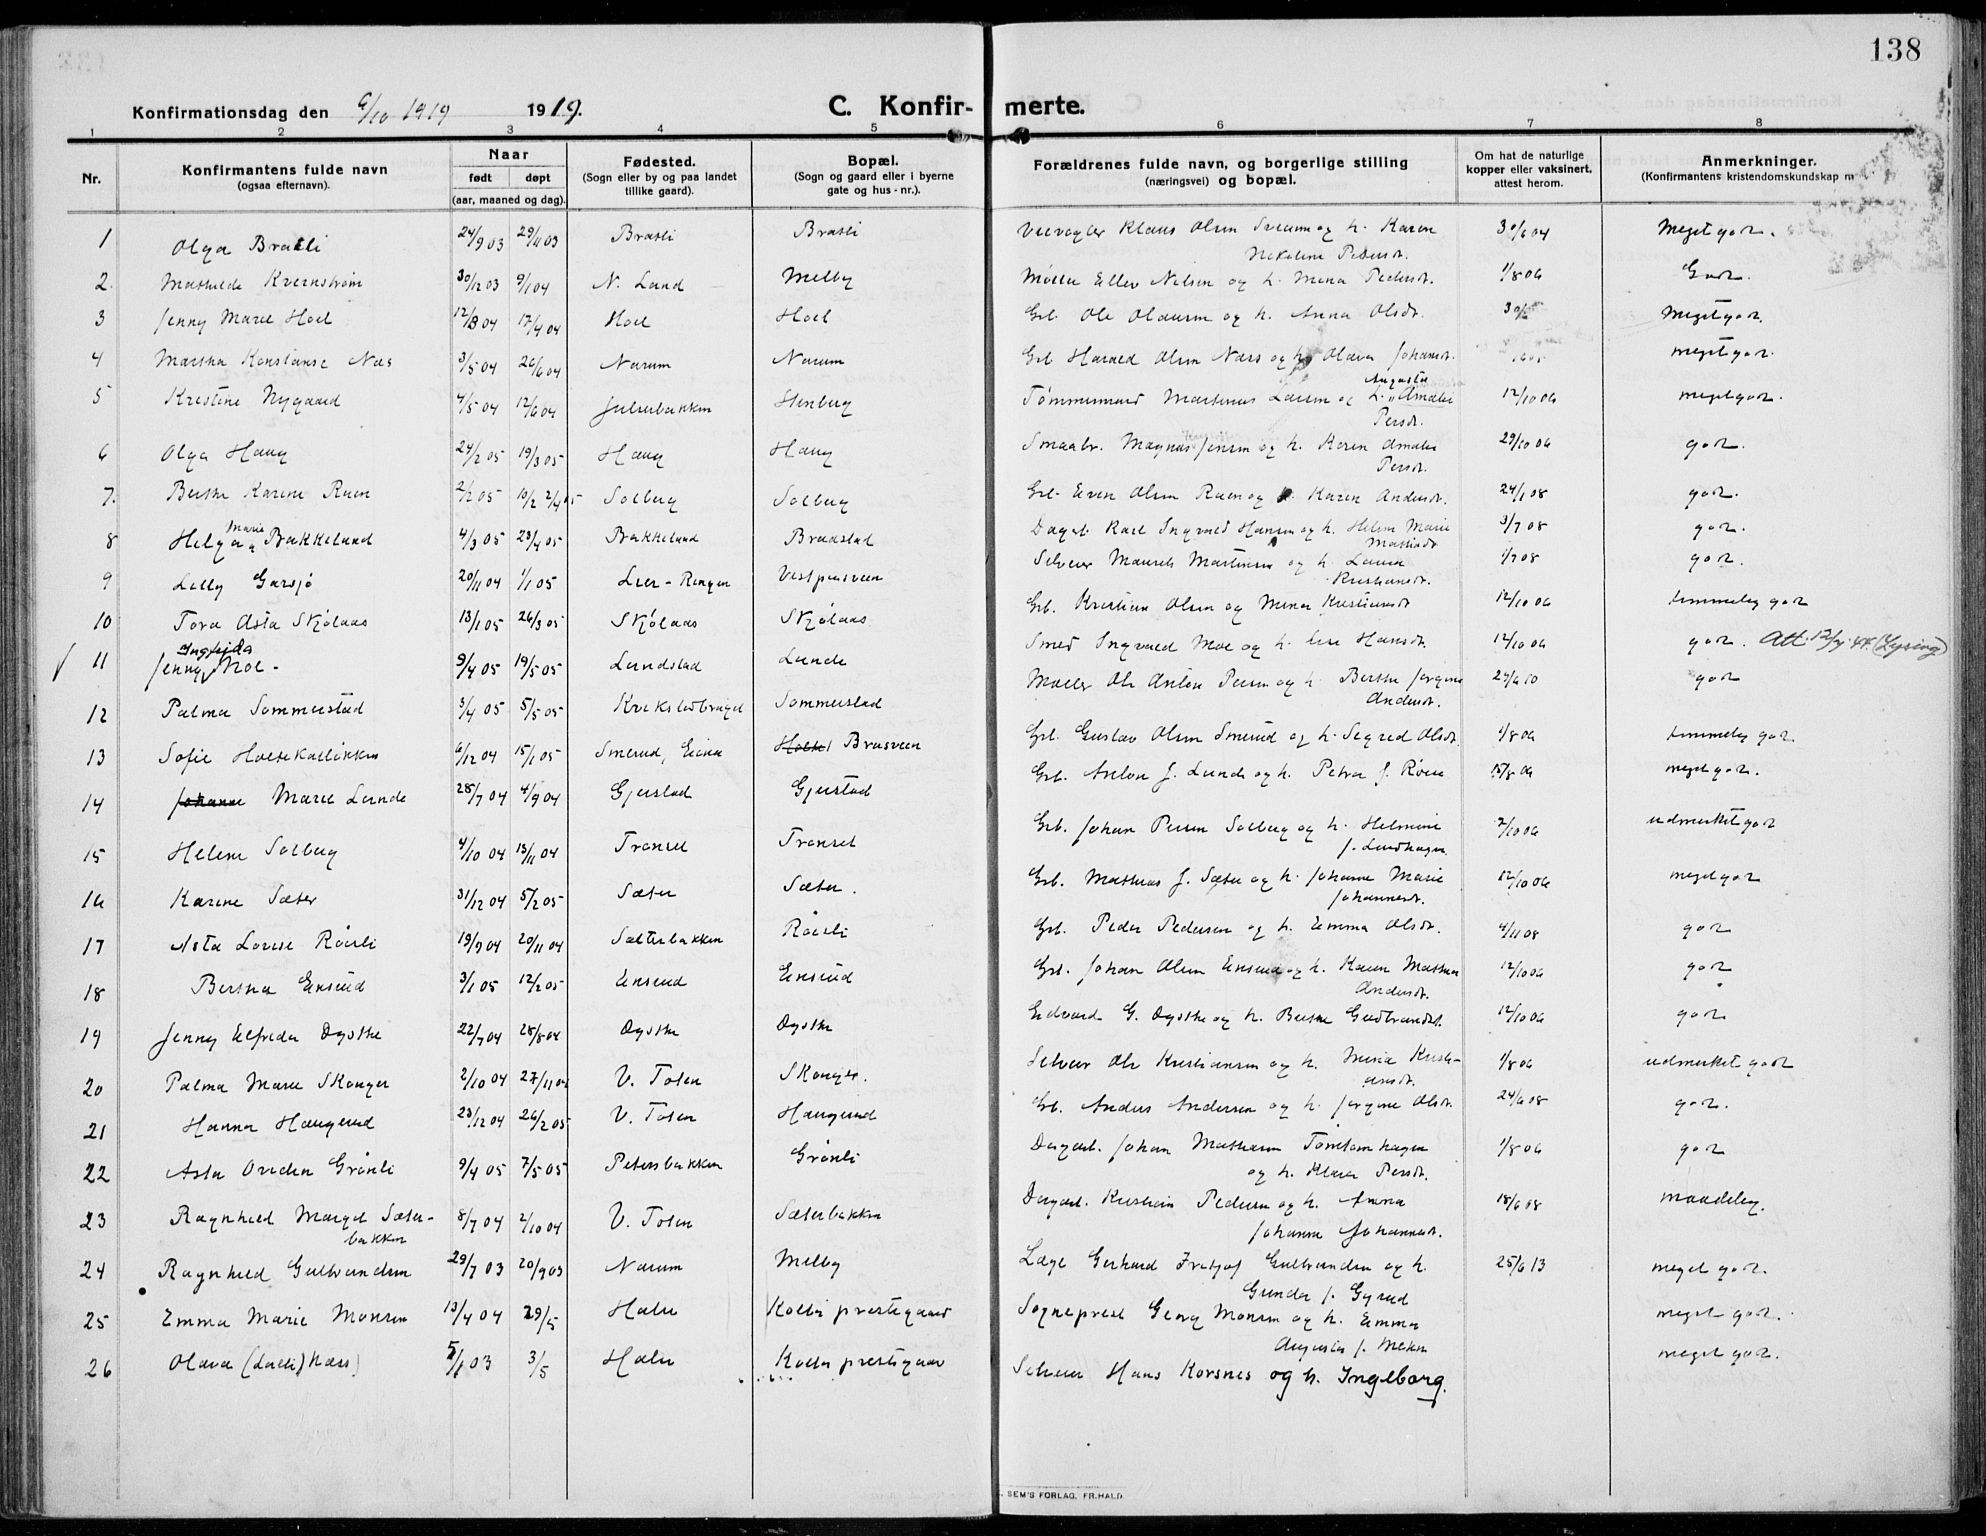 138
Konfirmationsdag den 9/10 1919 1919. C. Konfir- merte.
1 2 3 4 5 6 7 8
Nr. Konfirmantens fulde navn Naar Fødested. Bopæl. Forældrenes fulde navn, og borgerlige stilling Om hat de naturlige Anmerkninger.
(ogsaa efternavn). født døpt (Sogn eller by og paa landet (Sogn og gaard eller i byerne (næringsvei) og bopæl. kopper eller vaksinert, (Konfirmantens kristendomskundskap m
(aar, maaned og dag). tillike gaard). gate og hus-nr.). attest herom.
1 Olga Brasli 24/9 03 29/11 03 Brasli Brasli Veivogter Klaus Olsen og h. Karen 30/6 04 Meget god.
Nekoline Pedersd.
2. Mathilde Kvernstrøm 30/12 03 9/1 04 N. Land Melby Møller Ellev Nilsen og h. Mina Pedersd. 1/8 06 God.
3 Jenny Marie Hoel 12/3 04 17/4 04 Hoel Hoel Grb. Ole Olausen og h. Anna Olsdr. 30/ Meget god.
4 Martha Konstanse Næs 3/5 04 26/6 04 Narum Narum Grb. Harald Olsen Næss og h. Olava Johansd. meget god.
5 Kristine Nygaard 4/5 04 12/6 04 Julie­bakken Stenberg Tømmermand Martinus Larsen og h. Augusta Amalie 12/10 06 meget god.
Persdr.
6 Olga Haug 24/2 05 19/3 05 Haug Haug Smaabr. Magnus Jensen og h. Karen Amalie 29/10 06 god.
Persdr.
7. Berthe Karine Ruen 2/2 05 2/4 05 Solberg Solberg Grb. Even Olsen Ruen og h. Karen Andersd. 24/1 08 god.
8 Helga Marie Bakkelund 4/3 05 23/4 05 Bakkelund Braastad Dagarb. Karl Ingvald Hansen og h. Helene Marie 3/7 08 god.
Mathisdr.
9 Lilly Garsjø 20/11 04 1/1 05 Lier-Ringen Selveier Maurits Martinsen og h. Laura 1/7 08 god.
Kristiansd.
10 Tora Asta Skjølaas 13/1 05 26/3 05 Skjølaas Skjølaas Grb. Kristian Olsen og Mina Kristiansdr. 12/10 06 temmelig god
11 Jenny Ingfrida Moe - 9/4 05 19/5 05 Lundstad Lunde Smed Ingvald Moe og h. Lise Hansdr. 12/10 06 god. Att. 12/7 44. (Lysing)
12 Palma Sommerstad 3/4 05 5/5 05 Sommerstad Møller Ole Anton Persen og h. Berthe Jørgine 27/6 10 god
Andersdr.
13 Sofie Holtekallikken 6/12 04 15/1 05 Smerud, Eina Brasveen Grb. Gustav Olsen Smerud og h. Sigrid Olsdr. 1/8 06 temmelig god.
14 Johanne Marie Lunde 28/7 04 4/9 04 Gjerstad Gjerstad Grb. Anton J. Lunde og h. Petra f. Røise 15/8 06 meget god.
15 Helene Solberg 4/10 04 13/11 04 Transet Transet Grb. Johan Persen Solberg og h. Helmine 2/10 06 udmerket god
f. Lundhagen
16 Karine Sæter 31/12 04 5/2 05 Sæter Sæter. Grb. Mathias J. Sæter og h. Johanne Marie 12/10 06 meget god
Johannesd.
17 Asta Lovise Røisli 19/9 04 20/11 04 Sæterbakken Røisli Grb. Peder Pedersen og h. Emma Olsdr. 4/11 08 god
18 Bertha Ensrud 3/1 05 12/2 05 Ensrud Ensrud Grb. Johan Olsen Ensrud og h. Karen Mathea 12/10 06 god
Andersdr.
19 Jenny Elfrida Dyste 22/7 04 28/8 04 Dyste Dyste Edvard G. Dyste og h. Berthe Gudbrandsd. 12/10 06 god
20 Palma Marie Skonger 2/10 04 27/11 04 V. Toten Selveier Ole Kristiansen og h. Maria Kristi- 1/8 06 udmerket god
ansdr.
21 Hanna Haugerud 23/12 04 26/2 05 V. Toten Haugerud Grb. Anders Andersen og h. Jørgine Olsdr. 24/6 08 god.
22 Asta Grønli 9/4 05 7/5 05 Petersbakken Grønli Dagarb. Johan Mathesen Tømtenhagen 1/8 06 god
og h. Klara Persdr.
23 Ragnhild Margit Sæter- 8/7 04 2/10 04 V. Toten Sæterbakken Dagarb. Kristian Pedersen og h. Anna 18/6 08 maadelig.
bakken Johanne Johannesd.
24 Ragnhild Gulbrandsen 29/7 03 20/9 03 Narum Melby Læge Gerhard Fretjof Gulbrandsen og h. 25/6 13 meget god.
Gunda f. Gyrud
25 Emma Marie Monsen 13/4 04 29/5 Halse Kolbu prestegaard Sogneprest Georg Monsen og h. Emma meget god.
Augusta f.
26 Olava ( ) Næss 5/1 03 3/5 Halse Kolbu prestegaar Selveier Hans Korsnes og h. Ingeborg. meget god.
SEM'S FORLAG, FR.HALD